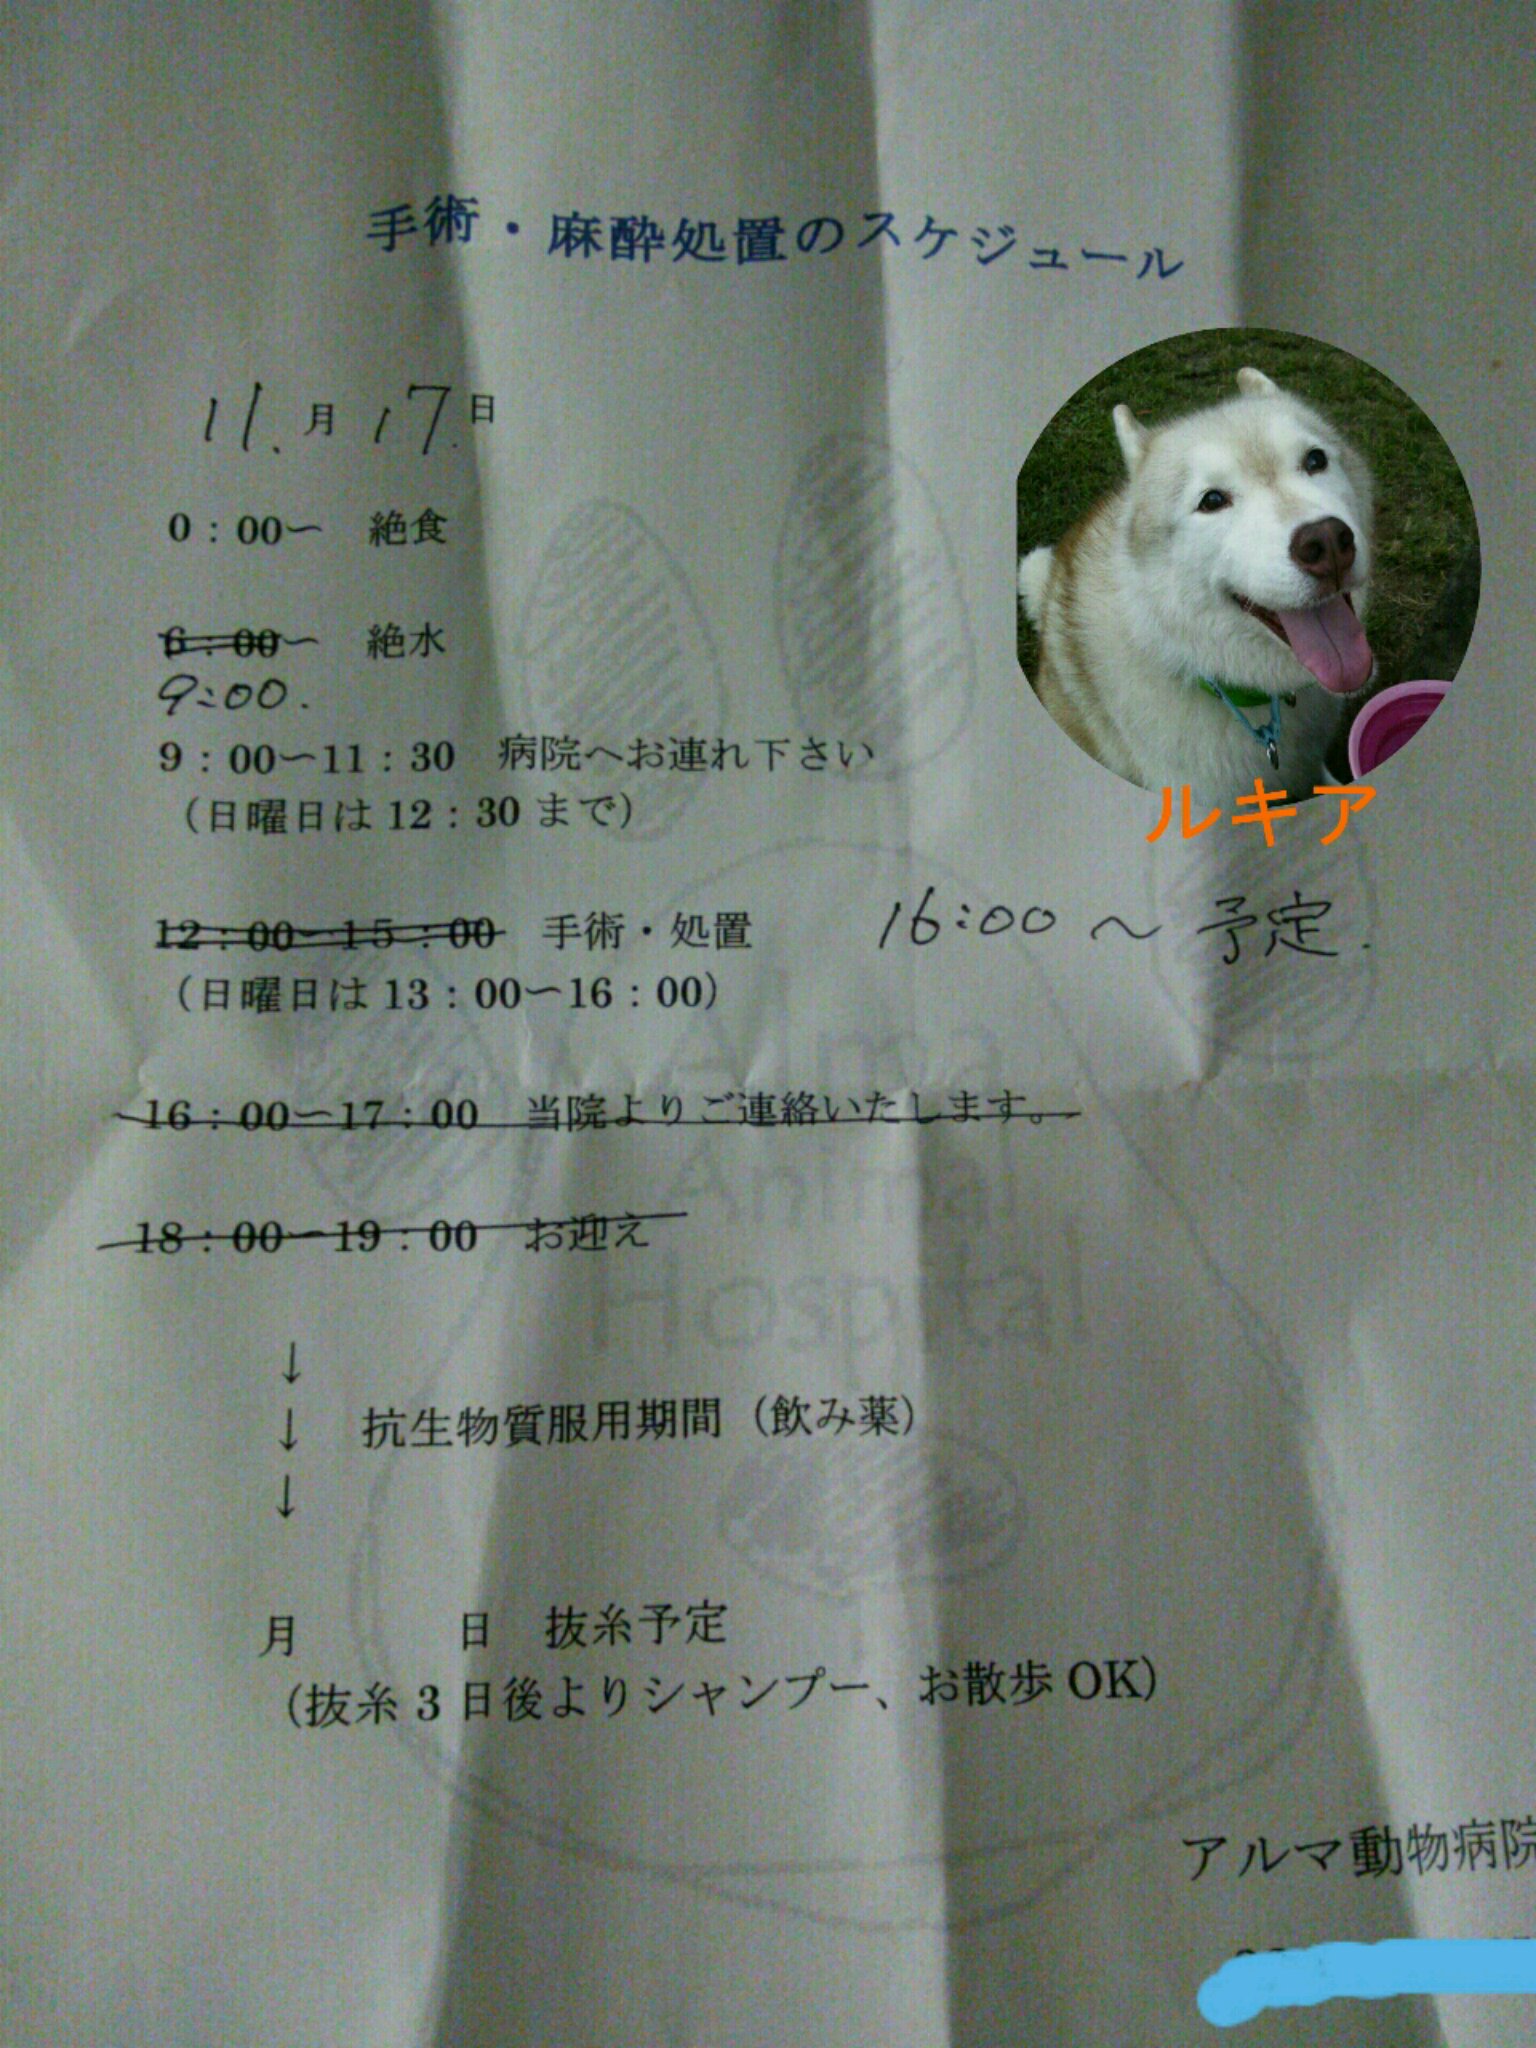 手術・麻酔処置のスケジュール
11.月 17.日
0:00〜 絶食
6:00〜 絶水
9:00.
9:00〜11:30 病院へお連れ下さい
(日曜日は12:30まで)
ルキア
12:00〜15:00 手術・処置 16:00〜予定.
(日曜日は13:00〜16:00)
16:00〜17:00 当院よりご連絡いたします。
18:00〜19:00 お迎え
Alma
Animal
Hospital
↓
↓ 抗生物質服用期間(飲み薬)
↓
月 日 抜糸予定
(抜糸3日後よりシャンプー、お散歩OK)
アルマ動物病院